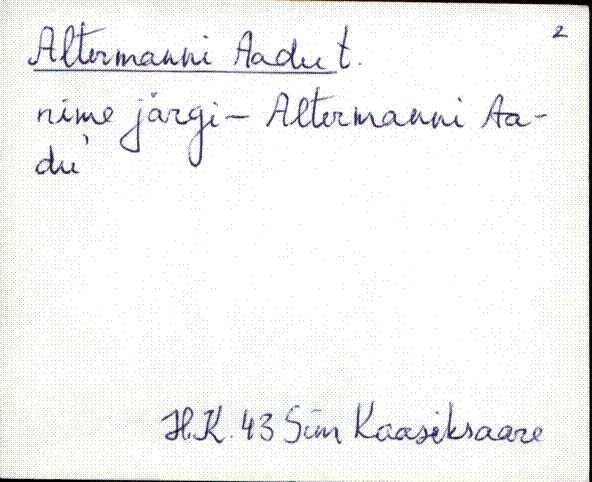 2
Altermanni Aadu t.
nime järgi – Altermanni Aa-
du'
H.K. 43 Siim Kaasiksaare